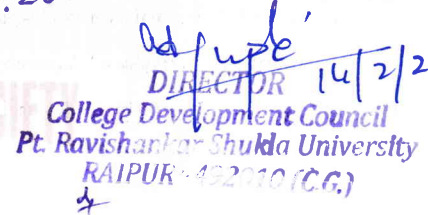 DIRECTOR 14/2/2
College Development Council
Pt. Ravishankar Shukla University
RAIPUR - 492010 (C.G.)